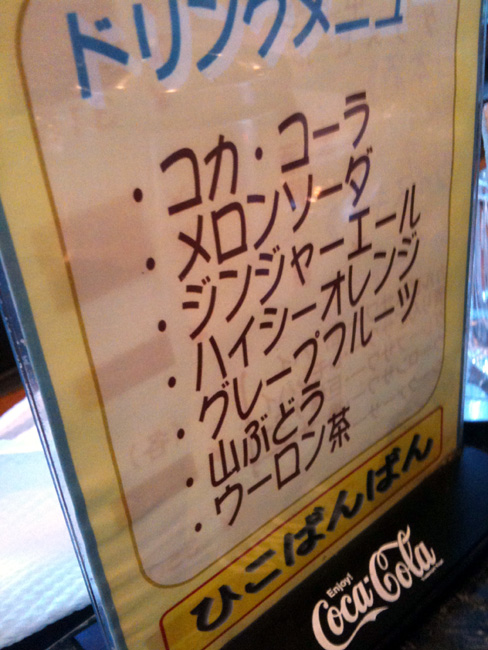 ドリンクメニュー
・コカ・コーラ
・メロンソーダ
・ジンジャーエール
・ハイシーオレンジ
・グレープフルーツ
・山ぶどう
・ウーロン茶
ひこばんばん
Enjoy!
Coca-Cola